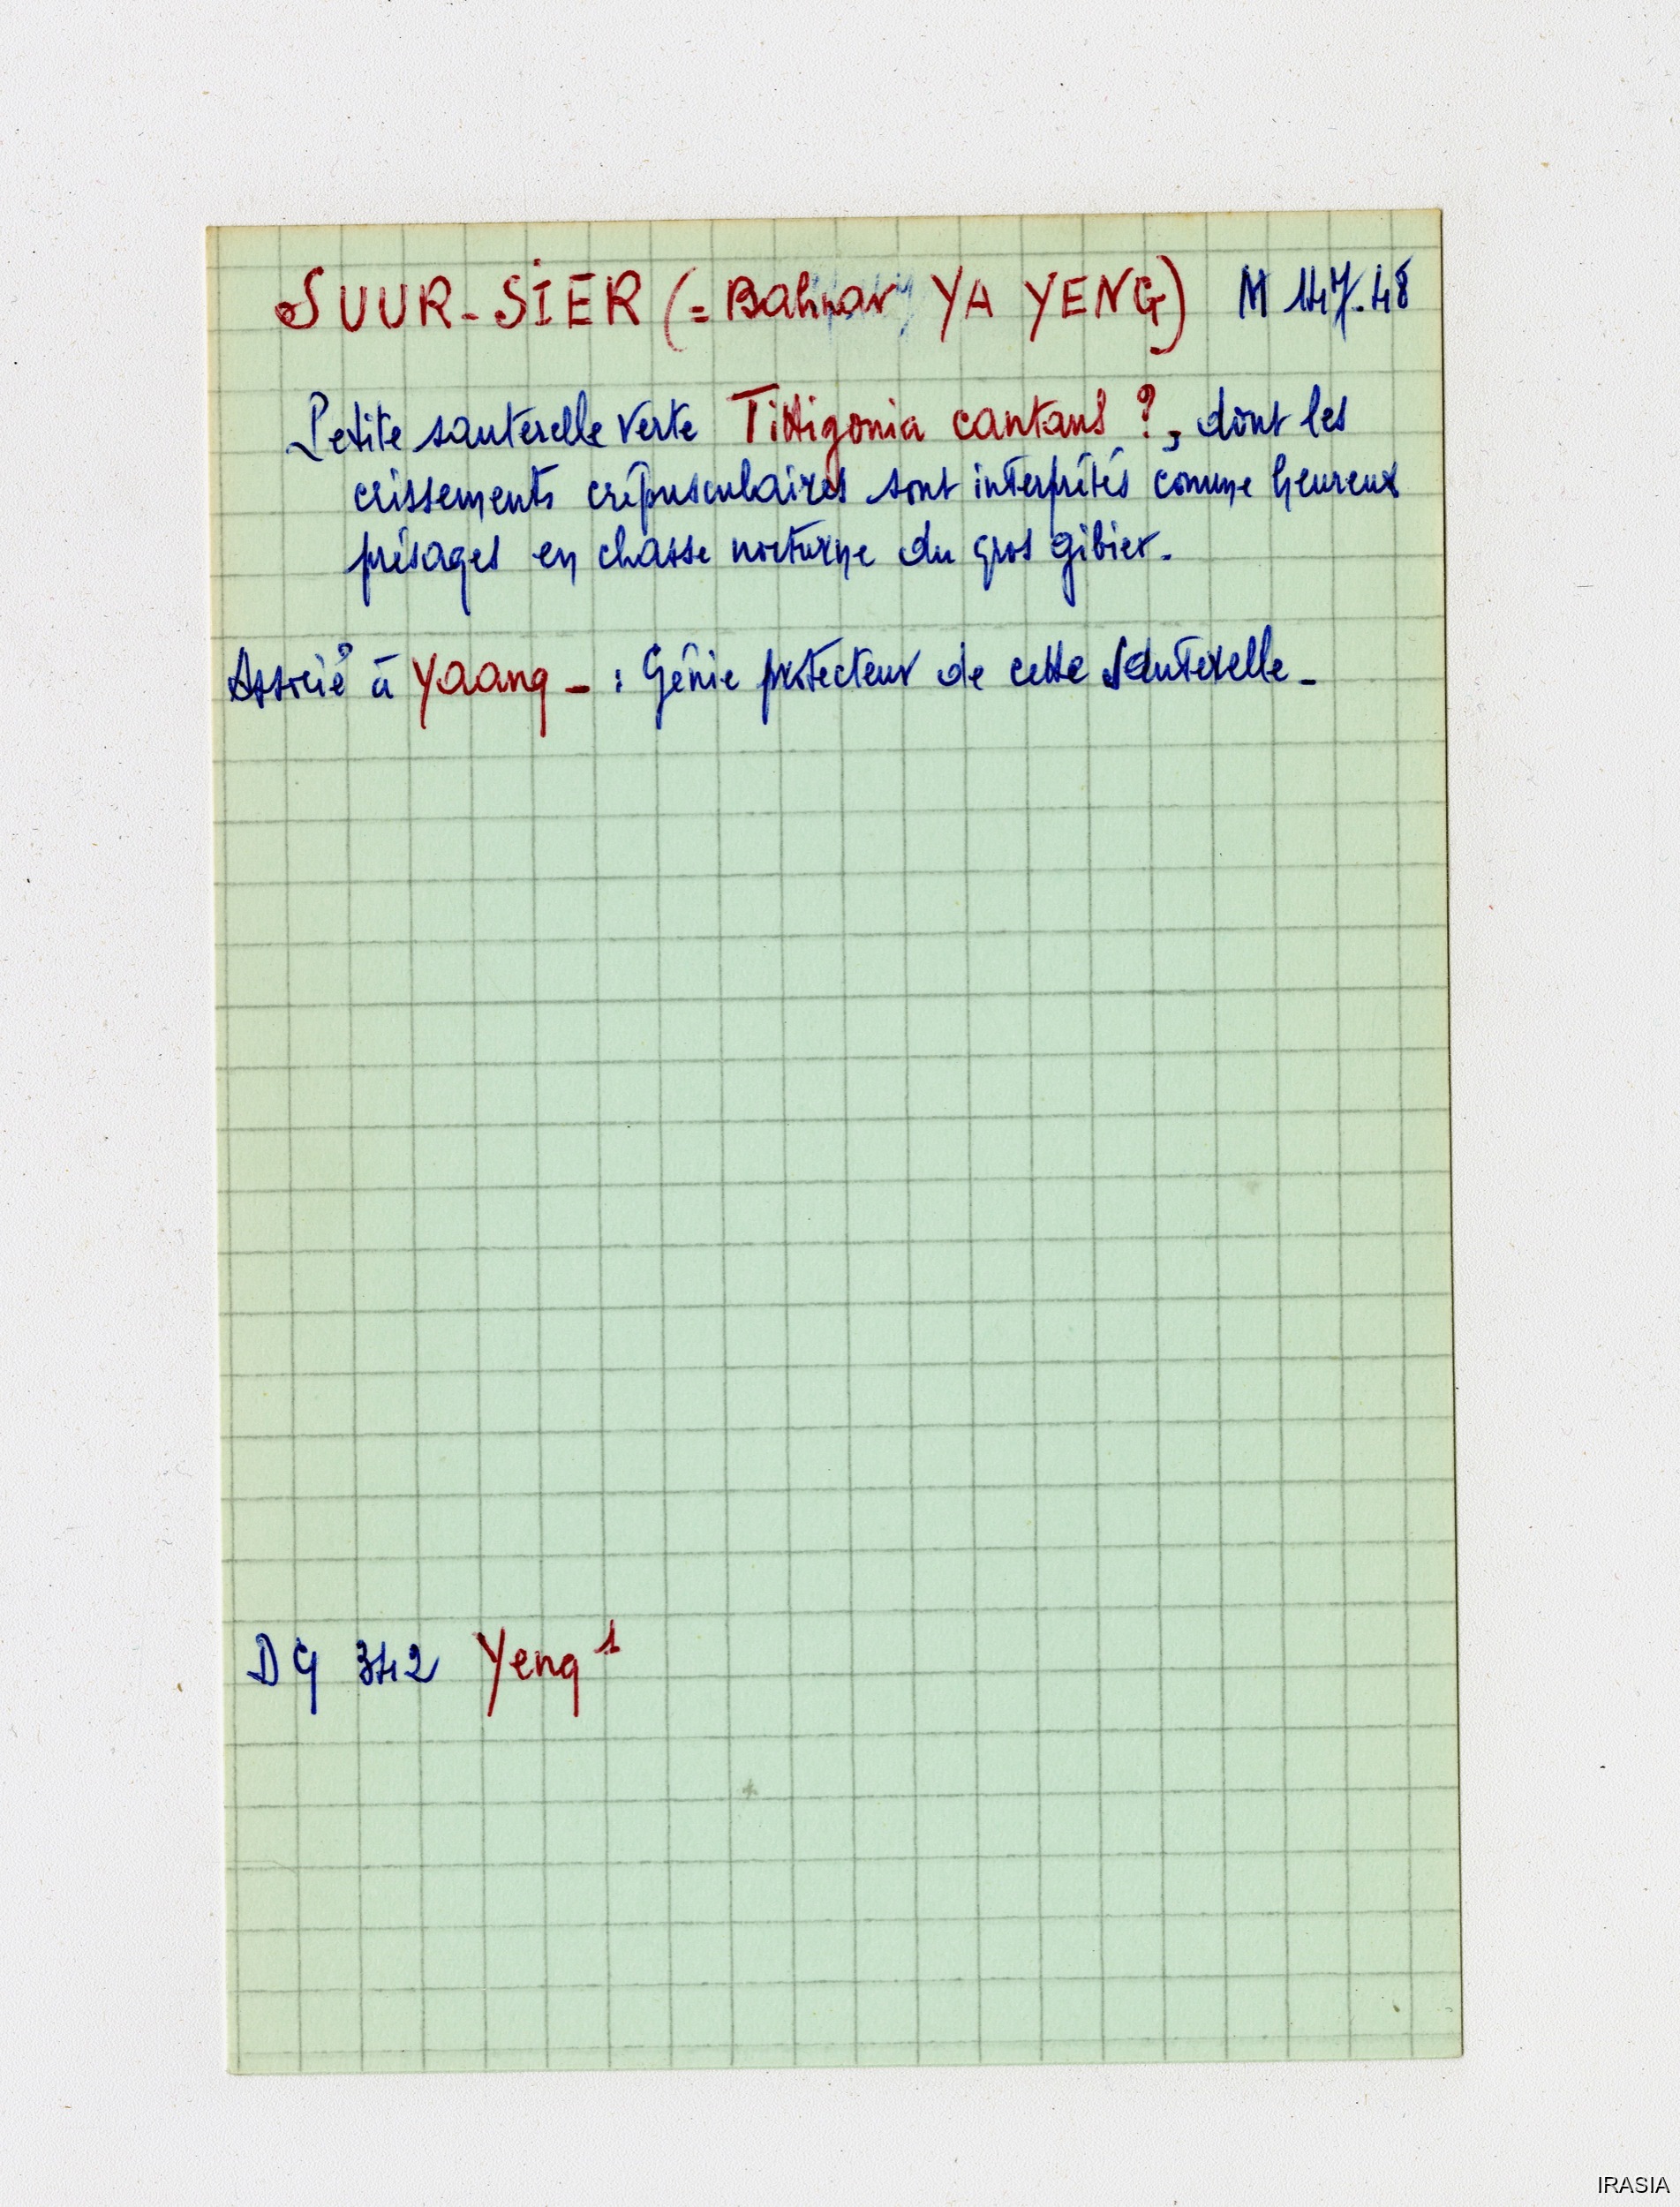 SUUR-SIER (= Bahnar YA YENG) M 147.48
Petite sauterelle verte Tittigonia cantans ?, dont les
crissements crépusculaires sont interprétés comme heureux
présages en chasse nocturne du gros gibier.
Associé à Yaang - : Génie protecteur de cette sauterelle -
DG 342 Yeng¹
IRASIA